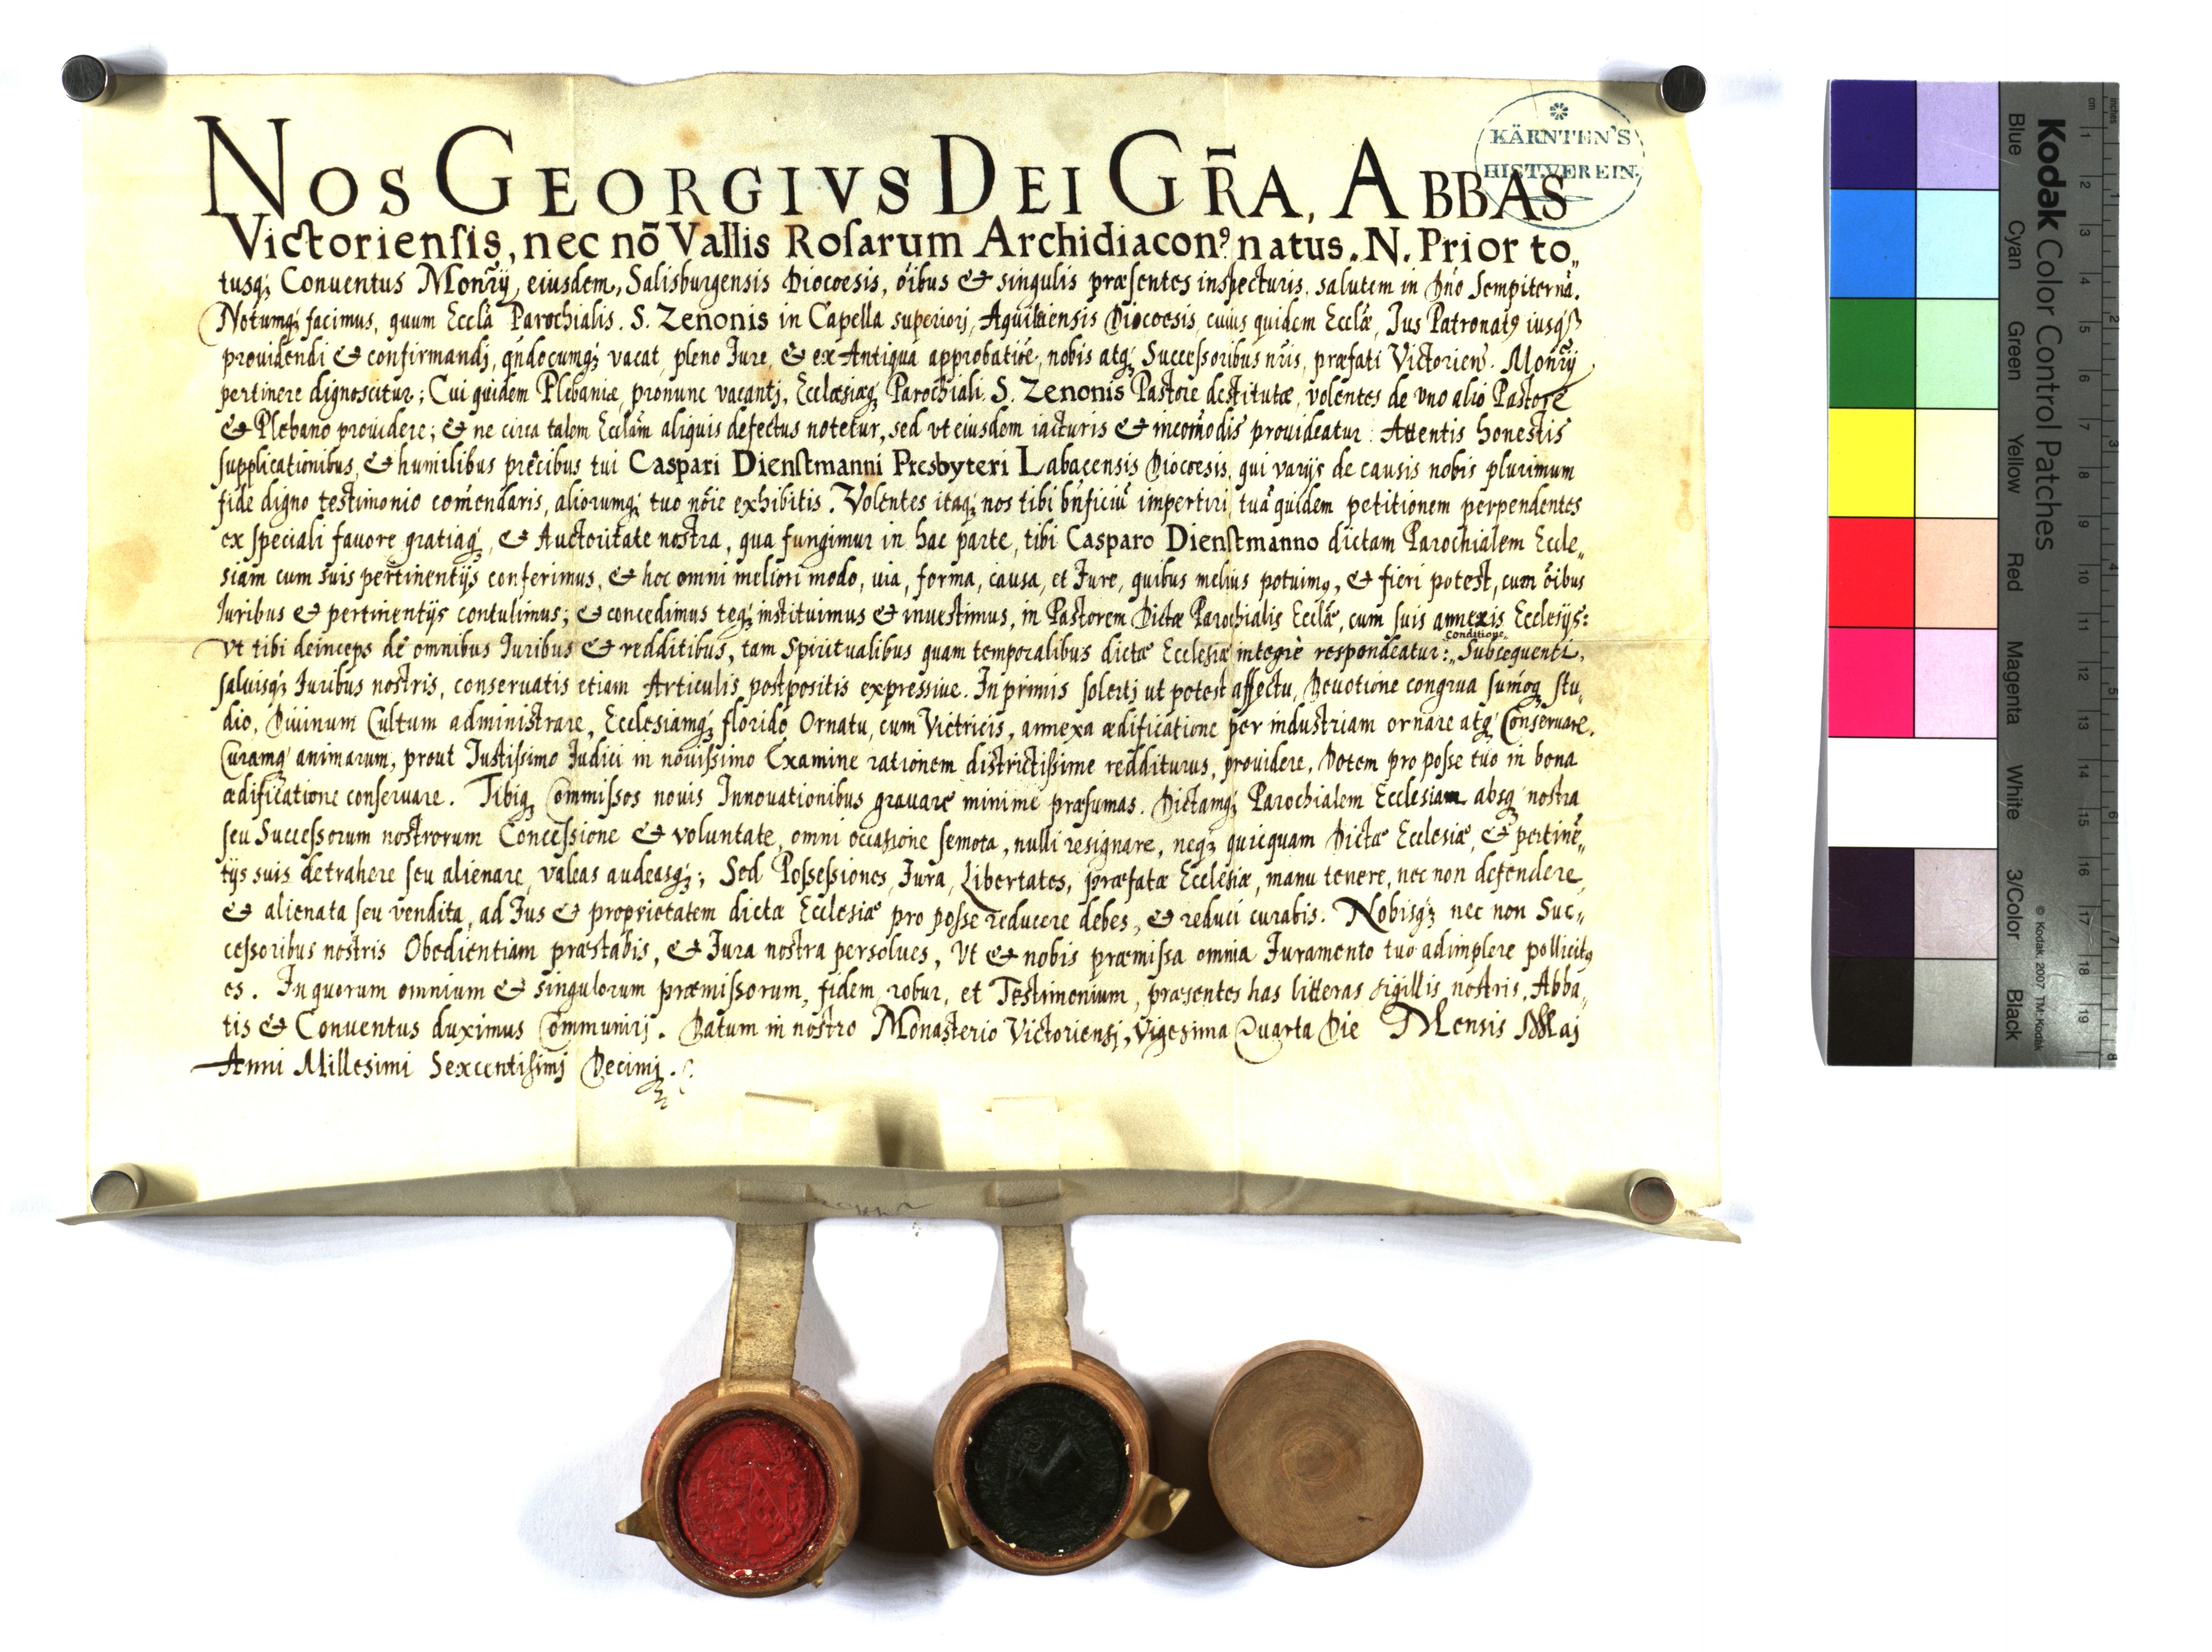 NOS GEORGIVS DEI GR̄A, ABBAS
Victoriensis, nec nō Vallis Rosarum Archidiacon⁹ natus. N. Prior to„
tusq; Conuentus Monr̃ij, eiusdem, Salisburgensis Diocoesis, õibus & singulis præsentes inspecturis, salutem in Dño Sempiternã.
Notumq; facimus, quum Ecclã Parochialis. S. Zenonis in Capella superiorj, Aquileiensis Diocoesis, cuius quidem Ecclæ, Jus Patronat⁹
prouidendi & confirmandj, qñdocumq; vacat, pleno Jure, & ex Antiqua approbatiõe, nobis atq; Successoribus nr̃is, præfati Victorien̄. Monr̃ij
pertinere dignoscitur; Cui quidem Plebaniæ, pronunc vacantj, Ecclæsiæq; Parochiali. S. Zenonis Pastore destitutæ, volentes de vno alio Pastore
& Plebano prouidere; & ne circa talem Ecclãm aliquis defectus notetur, sed vt eiusdem iacturis & incom̃odis prouideatur: Attentis honestis
supplicationibus, & humilibus precibus tui Caspari Dienstmanni Presbyteri Labacensis Diocoesis, qui varijs de causis nobis plurimum
fide digno testimonio com̃endaris, aliorumq; tuo nõie exhibitis. Volentes itaq; nos tibi bñficiũ impertiri, tuã quidem petitionem perpendentes
ex speciali fauore gratiaq;, & Auctoritate nostra, qua fungimur in hac parte, tibi Casparo Dienstmanno dictam Parochialem Eccle„
siam cum suis pertinentijs conferimus, & hoc omni meliori modo, uia, forma, causa, et Jure, quibus melius potuim⁹, & fieri potest, cum õibus
Juribus & pertinentijs contulimus; & concedimus teq; instituimus & inuestimus, in Pastorem Dictæ Parochialis Ecclæ, cum suis annexis Ecclesijs:
conditione.
Vt tibi deinceps de omnibus Juribus & redditibus, tam Spiritualibus quam temporalibus dictæ Ecclesiæ integrè respondeatur: „Subsequenti,
saluisq; Juribus nostris, conseruatis etiam Articulis postpositis expressiue. In primis solertj ut potest affectu, Deuotione congrua sum̃oq; stu„
dio, Diuinum Cultum administrare, Ecclesiamq; florido Ornatu, cum Victricis, annexa ædificatione per industriam ornare atq; Conseruare.
Curamq; animarum, prout Justissimo Judici in nouissimo Examine rationem districtissime redditurus, prouidere, Dotem pro posse tuo in bona
ædificatione conseruare. Tibiq; Commissos nouis Innouationibus grauare minime præsumas. Dictamq; Parochialem Ecclesiam absq; nostra
seu Successorum nostrorum Concessione & voluntate, omni occasione semota, nulli resignare, neq; quicquam Dictæ Ecclesiæ, & pertinẽ„
tijs suis detrahere seu alienare, valeas audeasq;; Sed Possessiones, Jura, Libertates, præfatæ Ecclesiæ, manu tenere, nec non defendere,
& alienata seu vendita, ad Jus & proprietatem dictæ Ecclesiæ pro posse reducere debes, & reduci curabis. Nobisq; nec non Suc„
cessoribus nostris Obedientiam præstabis, & Jura nostra persolues, Vt & nobis præmissa omnia Juramento tuo adimplere pollicit⁹
es. In quorum omnium & singulorum præmissorum, fidem, robur, et Testimonium, præsentes has litteras sigillis nostris, Abba„
tis & Conuentus duximus Communirj. Datum in nostro Monasterio Victoriensj, Vigesima Quarta Die Mensis Maj
Anni Millesimi Sexcentissimj Decimj.
KÄRNTEN'S
HIST. VEREIN.
Kodak Color Control Patches
Blue Cyan Green Yellow Red Magenta White 3/Color Black
© Kodak, 2007 TM: Kodak
cm 1 2 3 4 5 6 7 8 9 10 11 12 13 14 15 16 17 18 19
inches 1 2 3 4 5 6 7 8